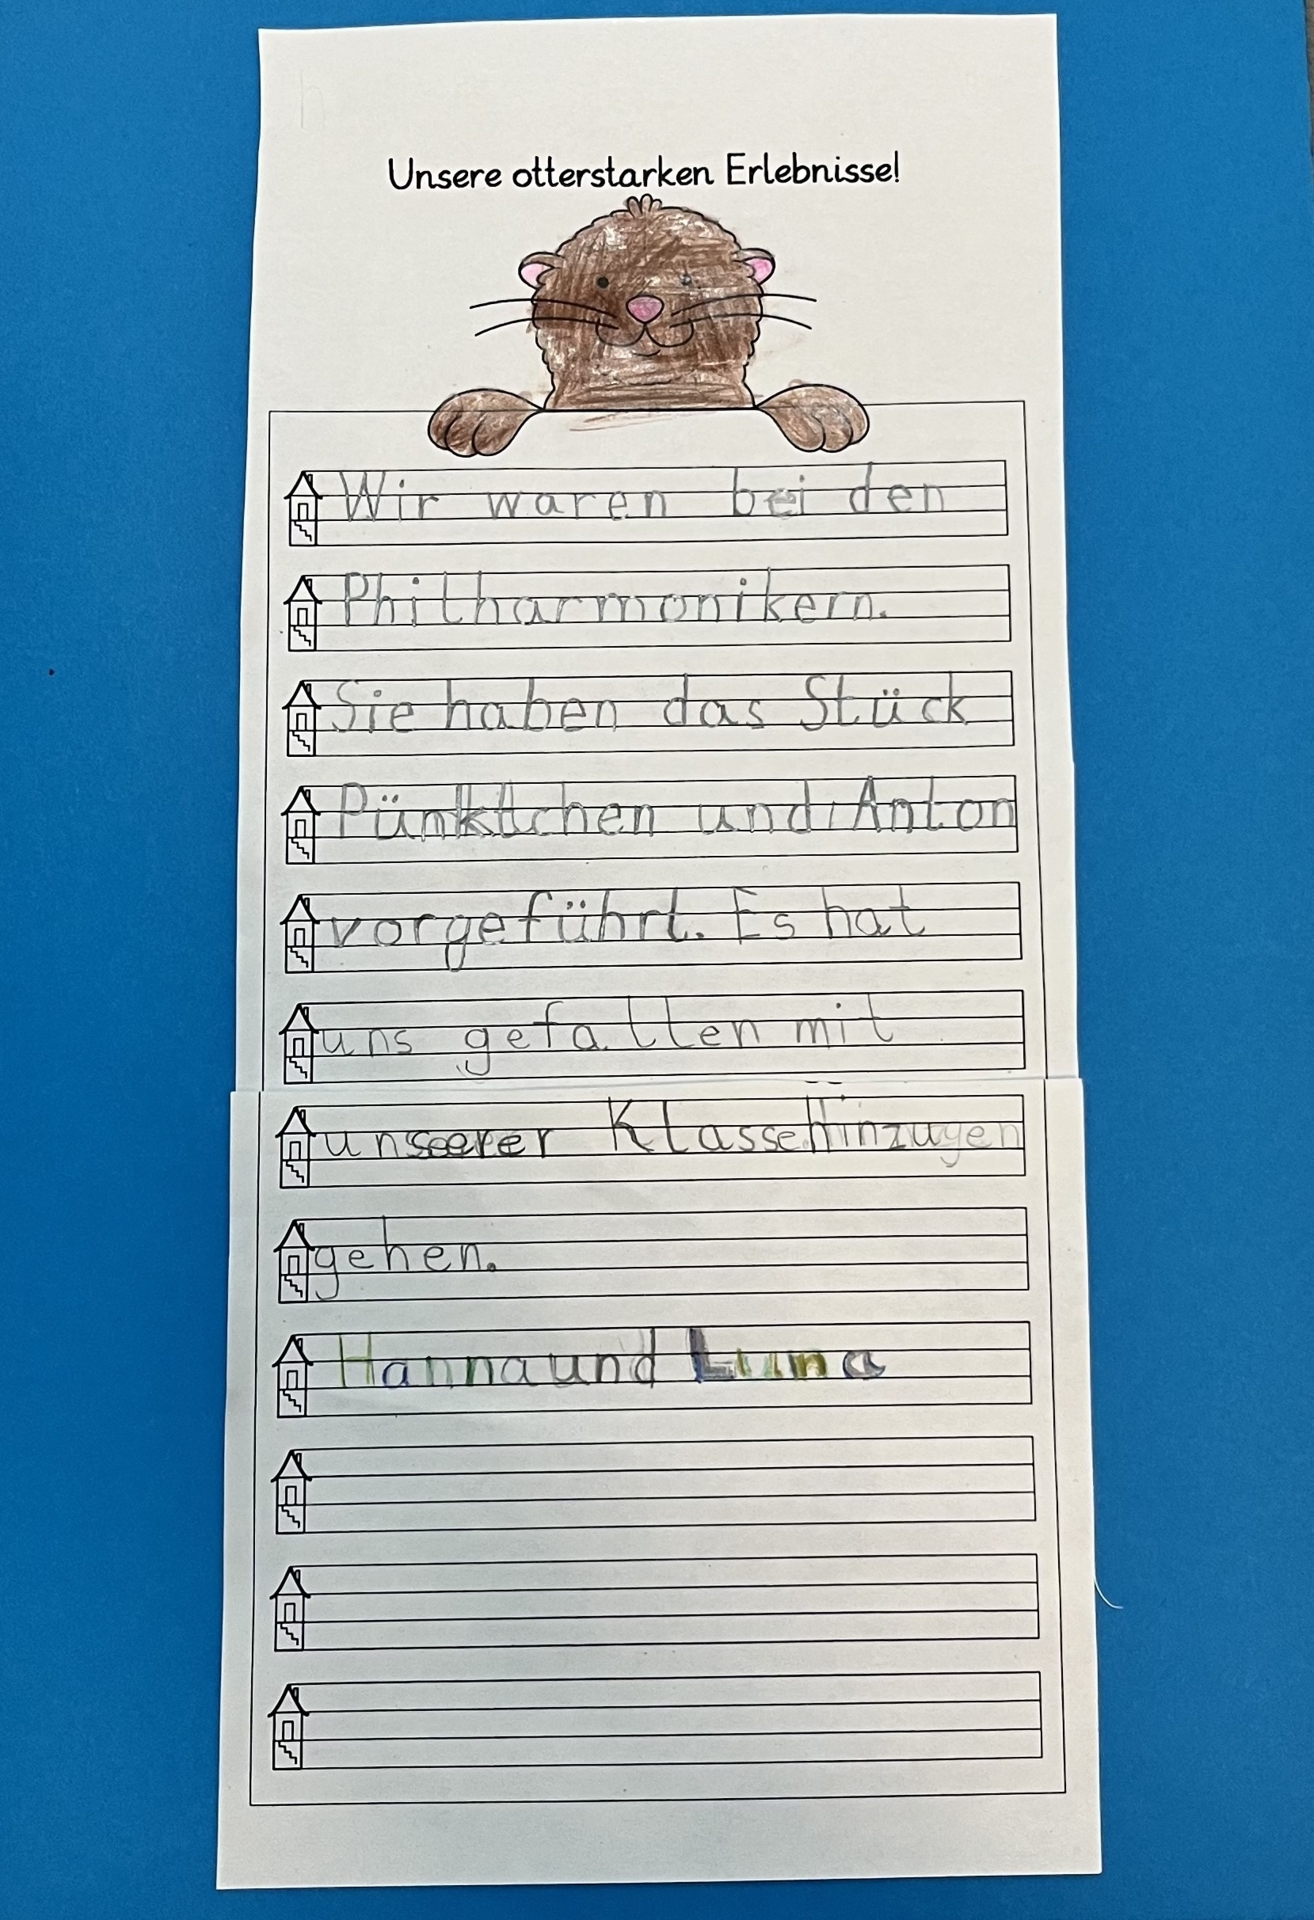 Unsere otterstarken Erlebnisse!
Wir waren bei den
Philharmonikern.
Sie haben das Stück
Pünktchen und Anton
vorgeführt. Es hat
uns gefallen mit
unserer Klasse hinzugen
gehen.
Hanna und Luna